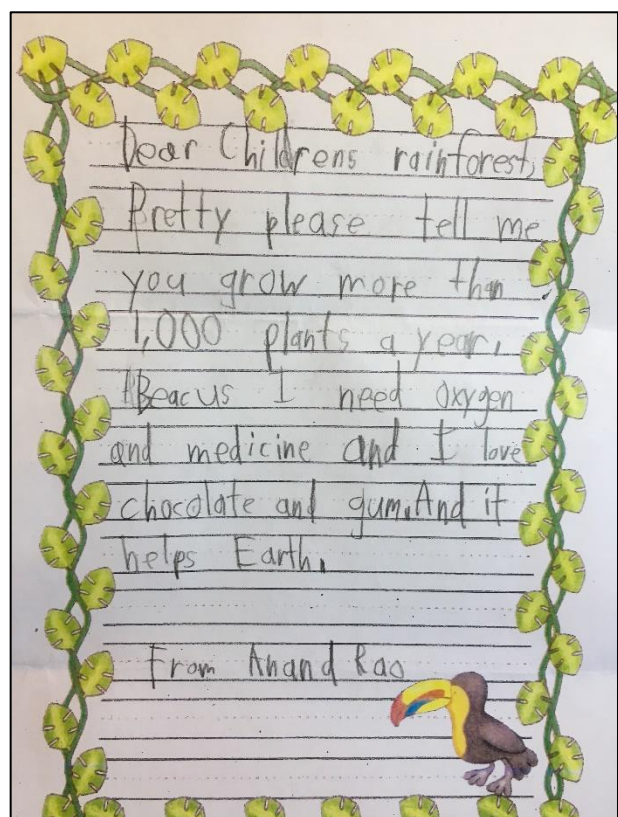 Dear Childrens rainforest,
Pretty please tell me
you grow more than
1,000 plants a year.
Beacus I need oxygen
and medicine and I love
chocolate and gum. And it
helps Earth.
From Anand Rao